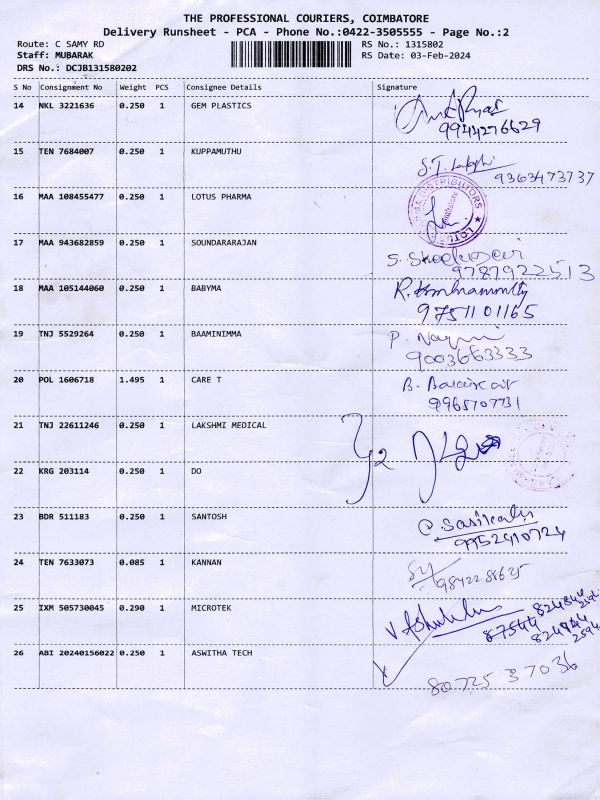 THE PROFESSIONAL COURIERS, COIMBATORE
Delivery Runsheet - PCA - Phone No.:0422-3505555 - Page No.:2
Route: C SAMY RD RS No.: 1315802
Staff: MUBARAK RS Date: 03-Feb-2024
DRS No.: DCJB131580202
S No Consignment No Weight PCS Consignee Details Signature
14 NKL 3221636 0.250 1 GEM PLASTICS
9944276629
15 TEN 7684007 0.250 1 KUPPAMUTHU
9363473737
16 MAA 108455477 0.250 1 LOTUS PHARMA
17 MAA 943682859 0.250 1 SOUNDARARAJAN
9787922513
18 MAA 105144060 0.250 1 BABYMA
9751101165
19 TNJ 5529264 0.250 1 BAAMINIMMA
9003663333
20 POL 1606718 1.495 1 CARE T
9965707731
21 TNJ 22611246 0.250 1 LAKSHMI MEDICAL
22 KRG 203114 0.250 1 DO
23 BDR 511183 0.250 1 SANTOSH
9952410724
24 TEN 7633073 0.085 1 KANNAN
25 IXM 505730045 0.290 1 MICROTEK
26 ABI 20240156022 0.250 1 ASWITHA TECH
80725 37036